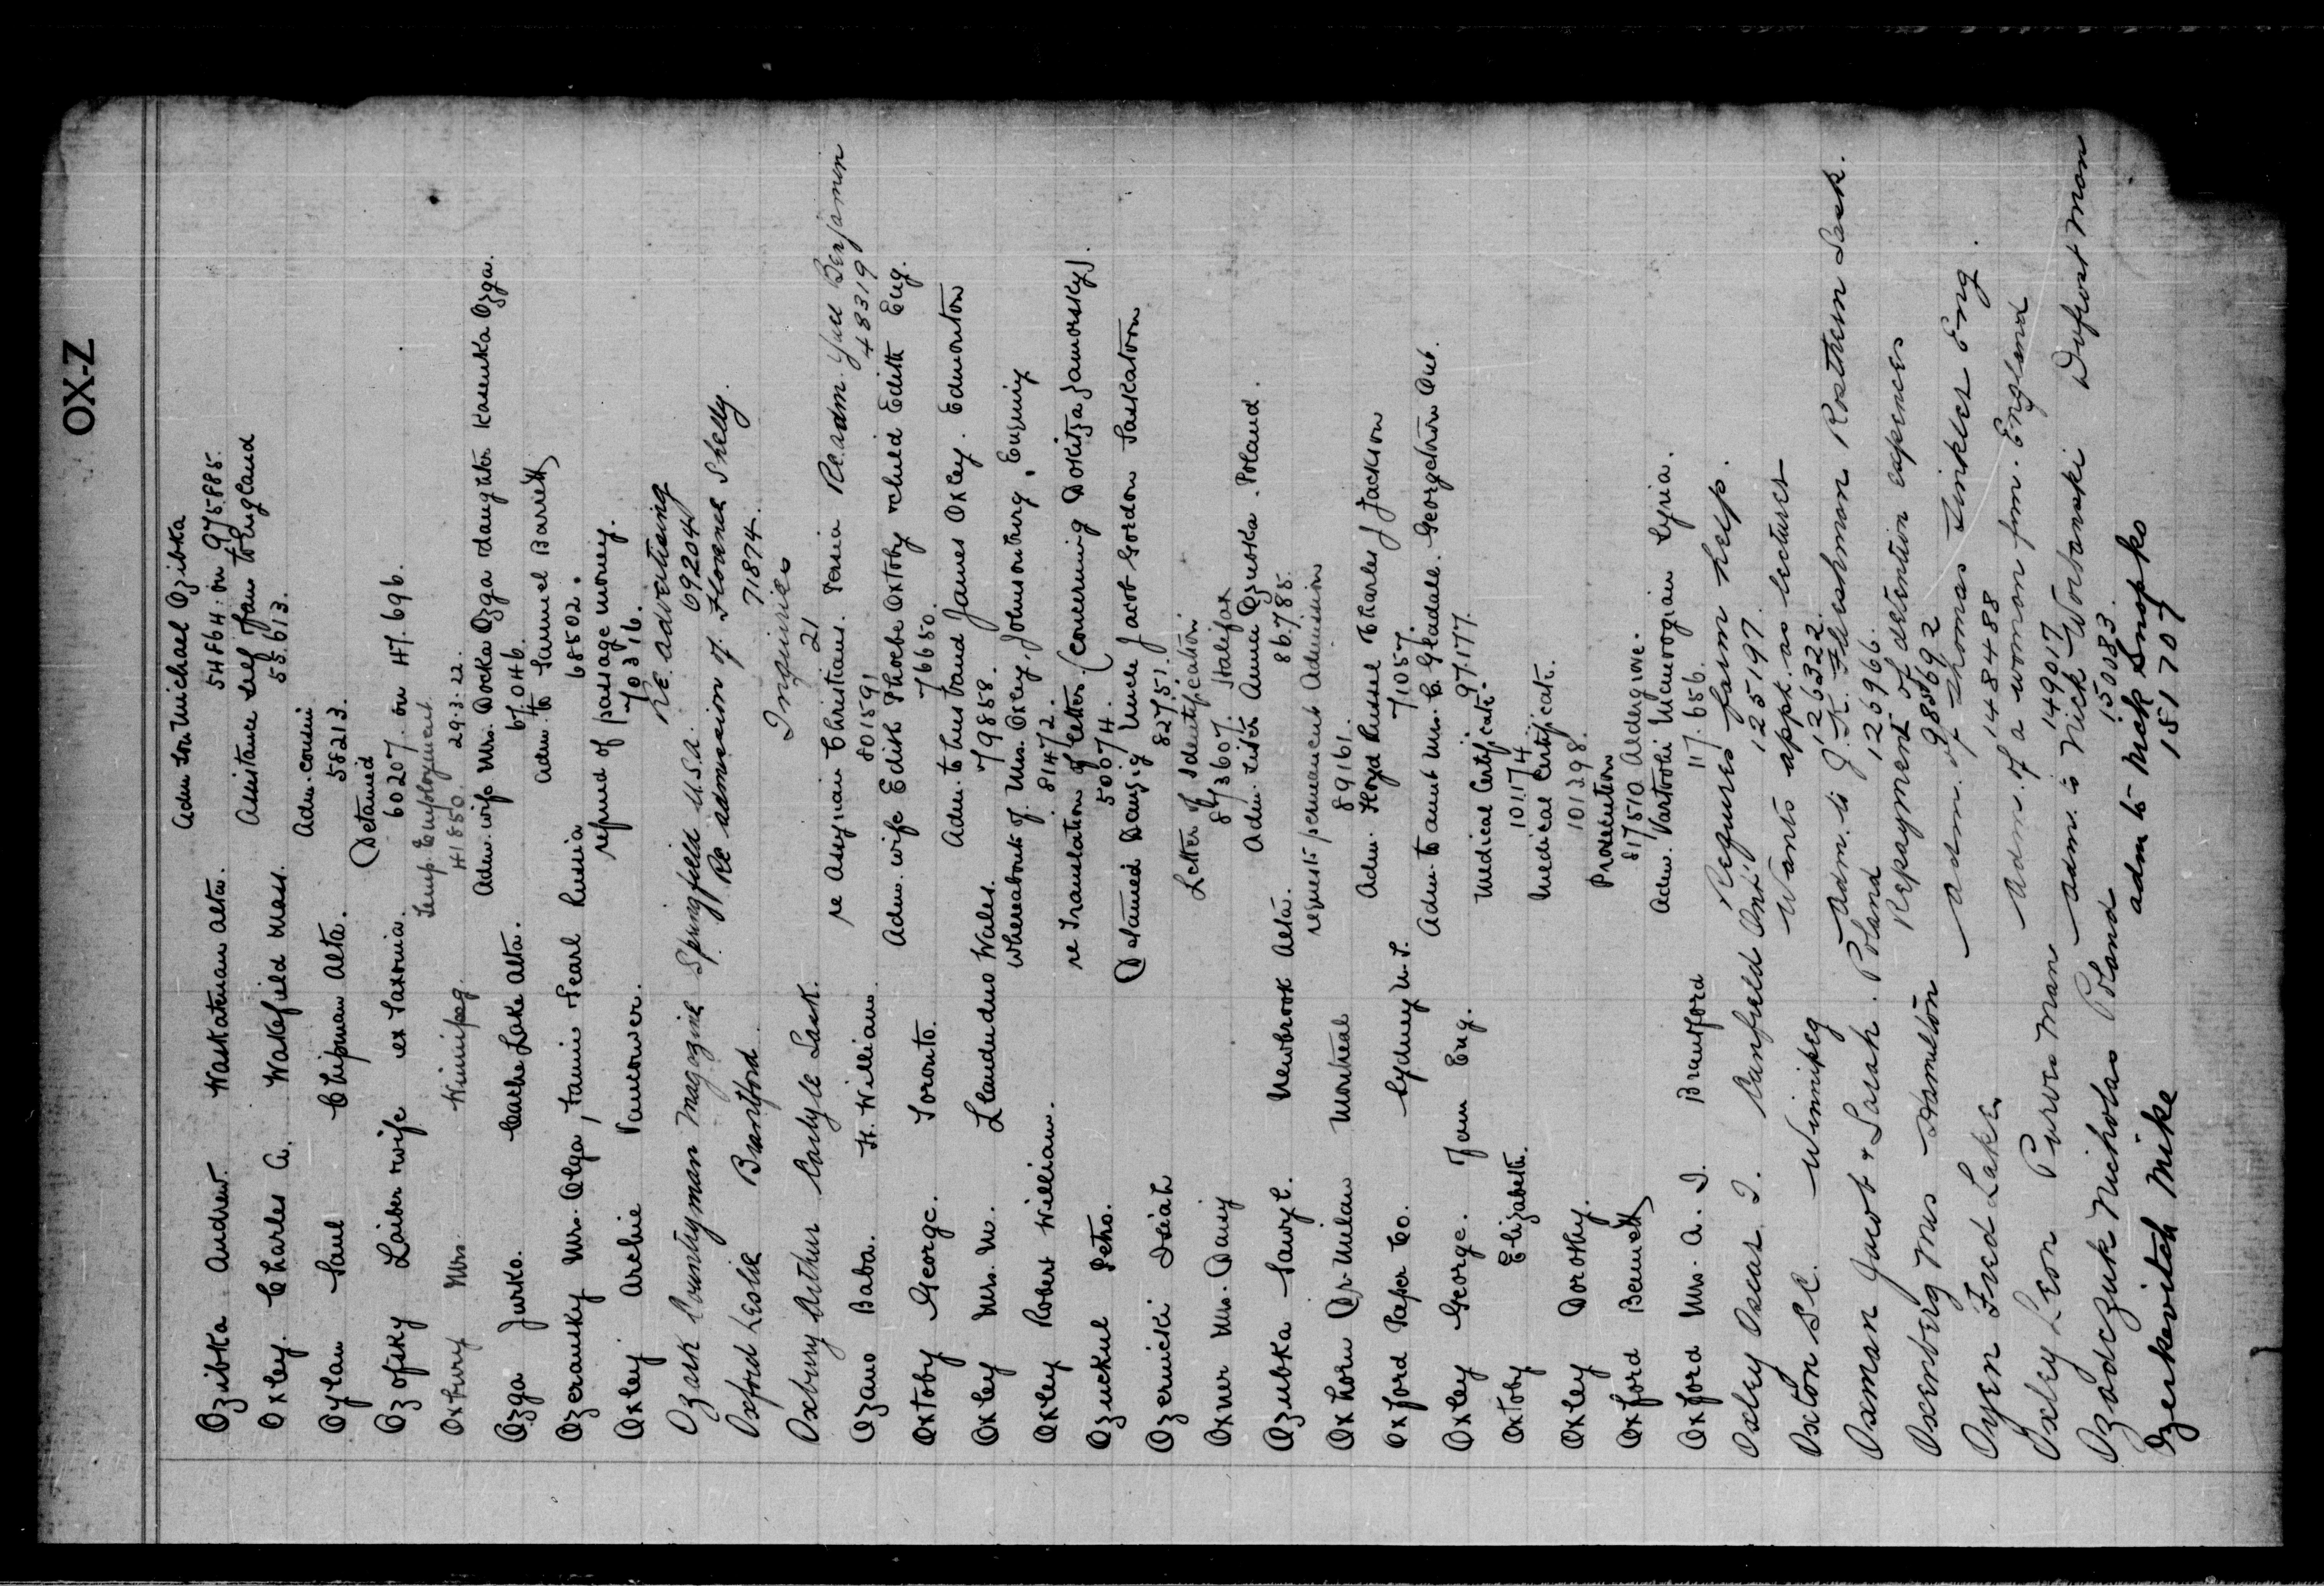 OX-Z
Adm. son Michael Ozibka
Ozibka Andrew Waskatenau Alta. 54864 in 975885.
Assistance self & fam to England
Oxley Charles A. Wakefield Mass. 55613.
Adm. cousin
Oylan Paul Chipman Alta. 58213.
Detained
Ozofsky Laiber & wife ex Saxonia. 60207 in 47.696.
Temp. Employment
Oxtury Mrs. Winnipeg 41850. 29.3.22.
Adm. wife Mrs. Docka Ozga daughter Kasenka Ozga.
Ozga Jurko. Cache Lake Alta. 67.046.
Adm. to Samuel Barrett
Ozeransky Mrs. Olga, Fannie & Pearl Russia 68502.
refund of passage money.
Oxley Archie Vancouver. 70316.
Re advertising
Ozark Countryman Magazine Springfield U.S.A. 69204
Re admission of Florence Shelly.
Oxford Leslie Brantford 71874.
Inquiries
Oxbury Arthur Carlyle Sask. 21
re Assyrian Christians. Persia Re. adm. Benjamin
Ozano Baba. Ft. William. 801591 48319
Adm. wife Edith Phoebe Oxtoby & child Edith Eng.
Oxtoby George. Toronto. 76650.
Adm. to husband James Oxley. Edmonton
Oxley Mrs. M. Llandudno Wales. 79858.
Whereabouts of Mrs. Oxley, Johnsonburg,
Oxley Robert William. 81472.
re Translation of letter. (concerning Dokitza Jaworsky).
Petro. 50074.
Detained Danzig Uncle Jacob Gordon Saskatoon
Ozernicki Isiah 82751.
Letter of Identification
Oxner Mrs. Daisy 873607. Halifax
Adm. sister Anna Ozubka. Poland.
Ozubka Newbrook Alta. 86.785.
requests permanent Admission
Oxhorn Dr. Milan Montreal 89161.
Adm. Floyd Russel & Charles J Jackson
Oxford Paper Co. Sydney N.S. 71057.
Adm. to aunt Mrs. C. Gladale. Georgetown Ont.
Oxley George. from Eng. 97.177.
Medical Certificate.
Oxtoby Elizabeth. 101174
Medical Certificate.
Oxley Dorothy. 101298.
Prosecution
Oxford Bennett 817510 Aldergrove.
Adm. Vartoohi Syria.
Oxford Mrs. A. J. Brantford 117.656.
Requires farm help.
Oxley Oscar J. Canfield Ont. 125197.
Wants appt. as lecturer
Oxton S.C. Winnipeg 126322.
Adm. to J.K. Fleshman Rosthern Sask.
Oxman Jacob & Sarah. Poland 126966.
Repayment of detention expences
Oxenberg Mrs Hamilton 985692
Adm. of Thomas Tinkler Eng.
Oyen Fred Laken 148488
Adm. of a woman from England
Oxley Leon Purves Man 149017
Adm. to Nick Worbanski Dufrost Man
Ozadczuk Nicholas Poland 150083.
adm to Nick Snopko
Ozerkevitch Mike 151707